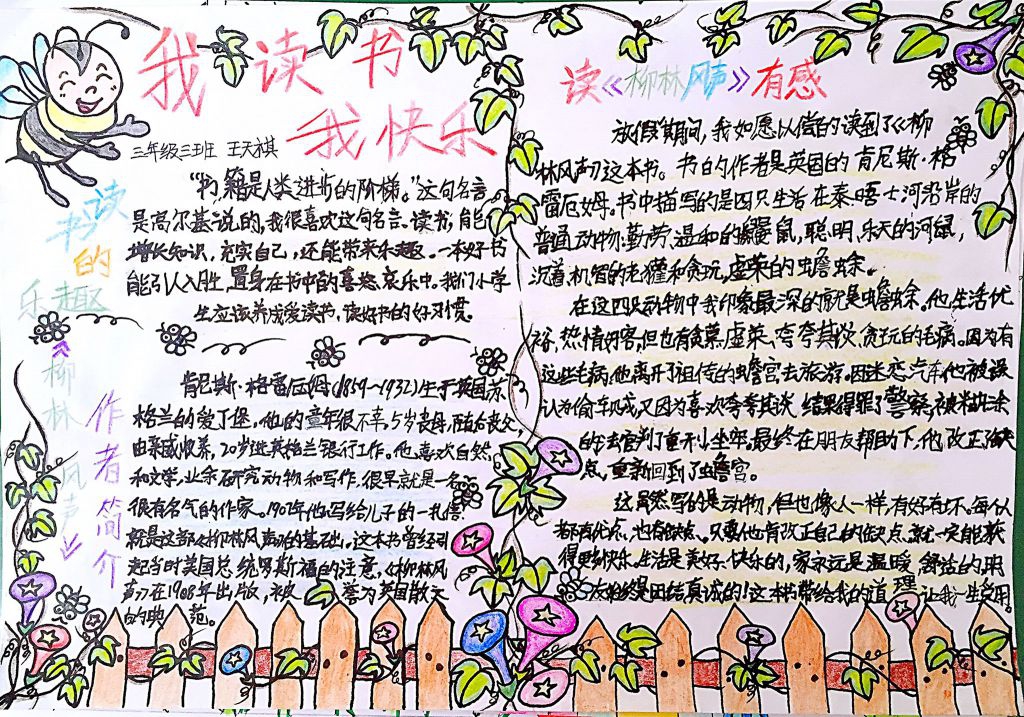 我读书
我快乐
三年级三班 王天祺
读书的乐趣
“书籍是人类进步的阶梯。”这句名言
是高尔基说的,我很喜欢这句名言。读书,能
增长知识,充实自己,还能带来乐趣。一本好书
能引人入胜,置身在书中的喜怒哀乐中。我们小学
生应该养成爱读书,读好书的好习惯。
《柳林风声》
作者简介
肯尼斯·格雷厄姆(1859～1932)生于英国苏
格兰的爱丁堡。他的童年很不幸,5岁丧母,随后丧父
由亲戚收养,20岁进英格兰银行工作。他喜欢自然
和文学,业余研究动物和写作,很早就是一名
很有名气的作家。1907年他写给儿子的一扎信
就是这部《柳林风声》的基础。这本书曾经引
起当时美国总统罗斯福的注意。《柳林风
声》在1908年出版,被誉为英国散文
的典范。
读《柳林风声》有感
放假期间,我如愿以偿的读到了《柳
林风声》这本书。书的作者是英国的肯尼斯·格
雷厄姆。书中描写的是四只生活在泰晤士河沿岸的
普通动物:勤劳、温和的鼹鼠,聪明、乐天的河鼠,
沉着、机智的老獾和贪玩、虚荣的蟾蜍。
在这四只动物中我印象最深的就是蟾蜍。他生活优
裕,热情好客,但也有贪慕虚荣、夸夸其谈、贪玩的毛病。因为有
这些毛病,他离开了祖传的蟾宫去旅游。因迷恋汽车他被误
认为偷车贼,又因为喜欢夸夸其谈,结果得罪了警察,被糊涂
的法官判了重刑坐牢。最终在朋友帮助下,他改正缺
点,重新回到了蟾宫。
这虽然写的是动物,但也像人一样,有好有坏。每个人
都有优点,也有缺点。只要他肯改正自己的缺点,就一定能获
得更多快乐。生活是美好、快乐的,家永远是温暖、舒适的,朋
友始终是团结真诚的!这本书带给我的道理让我一生受用。